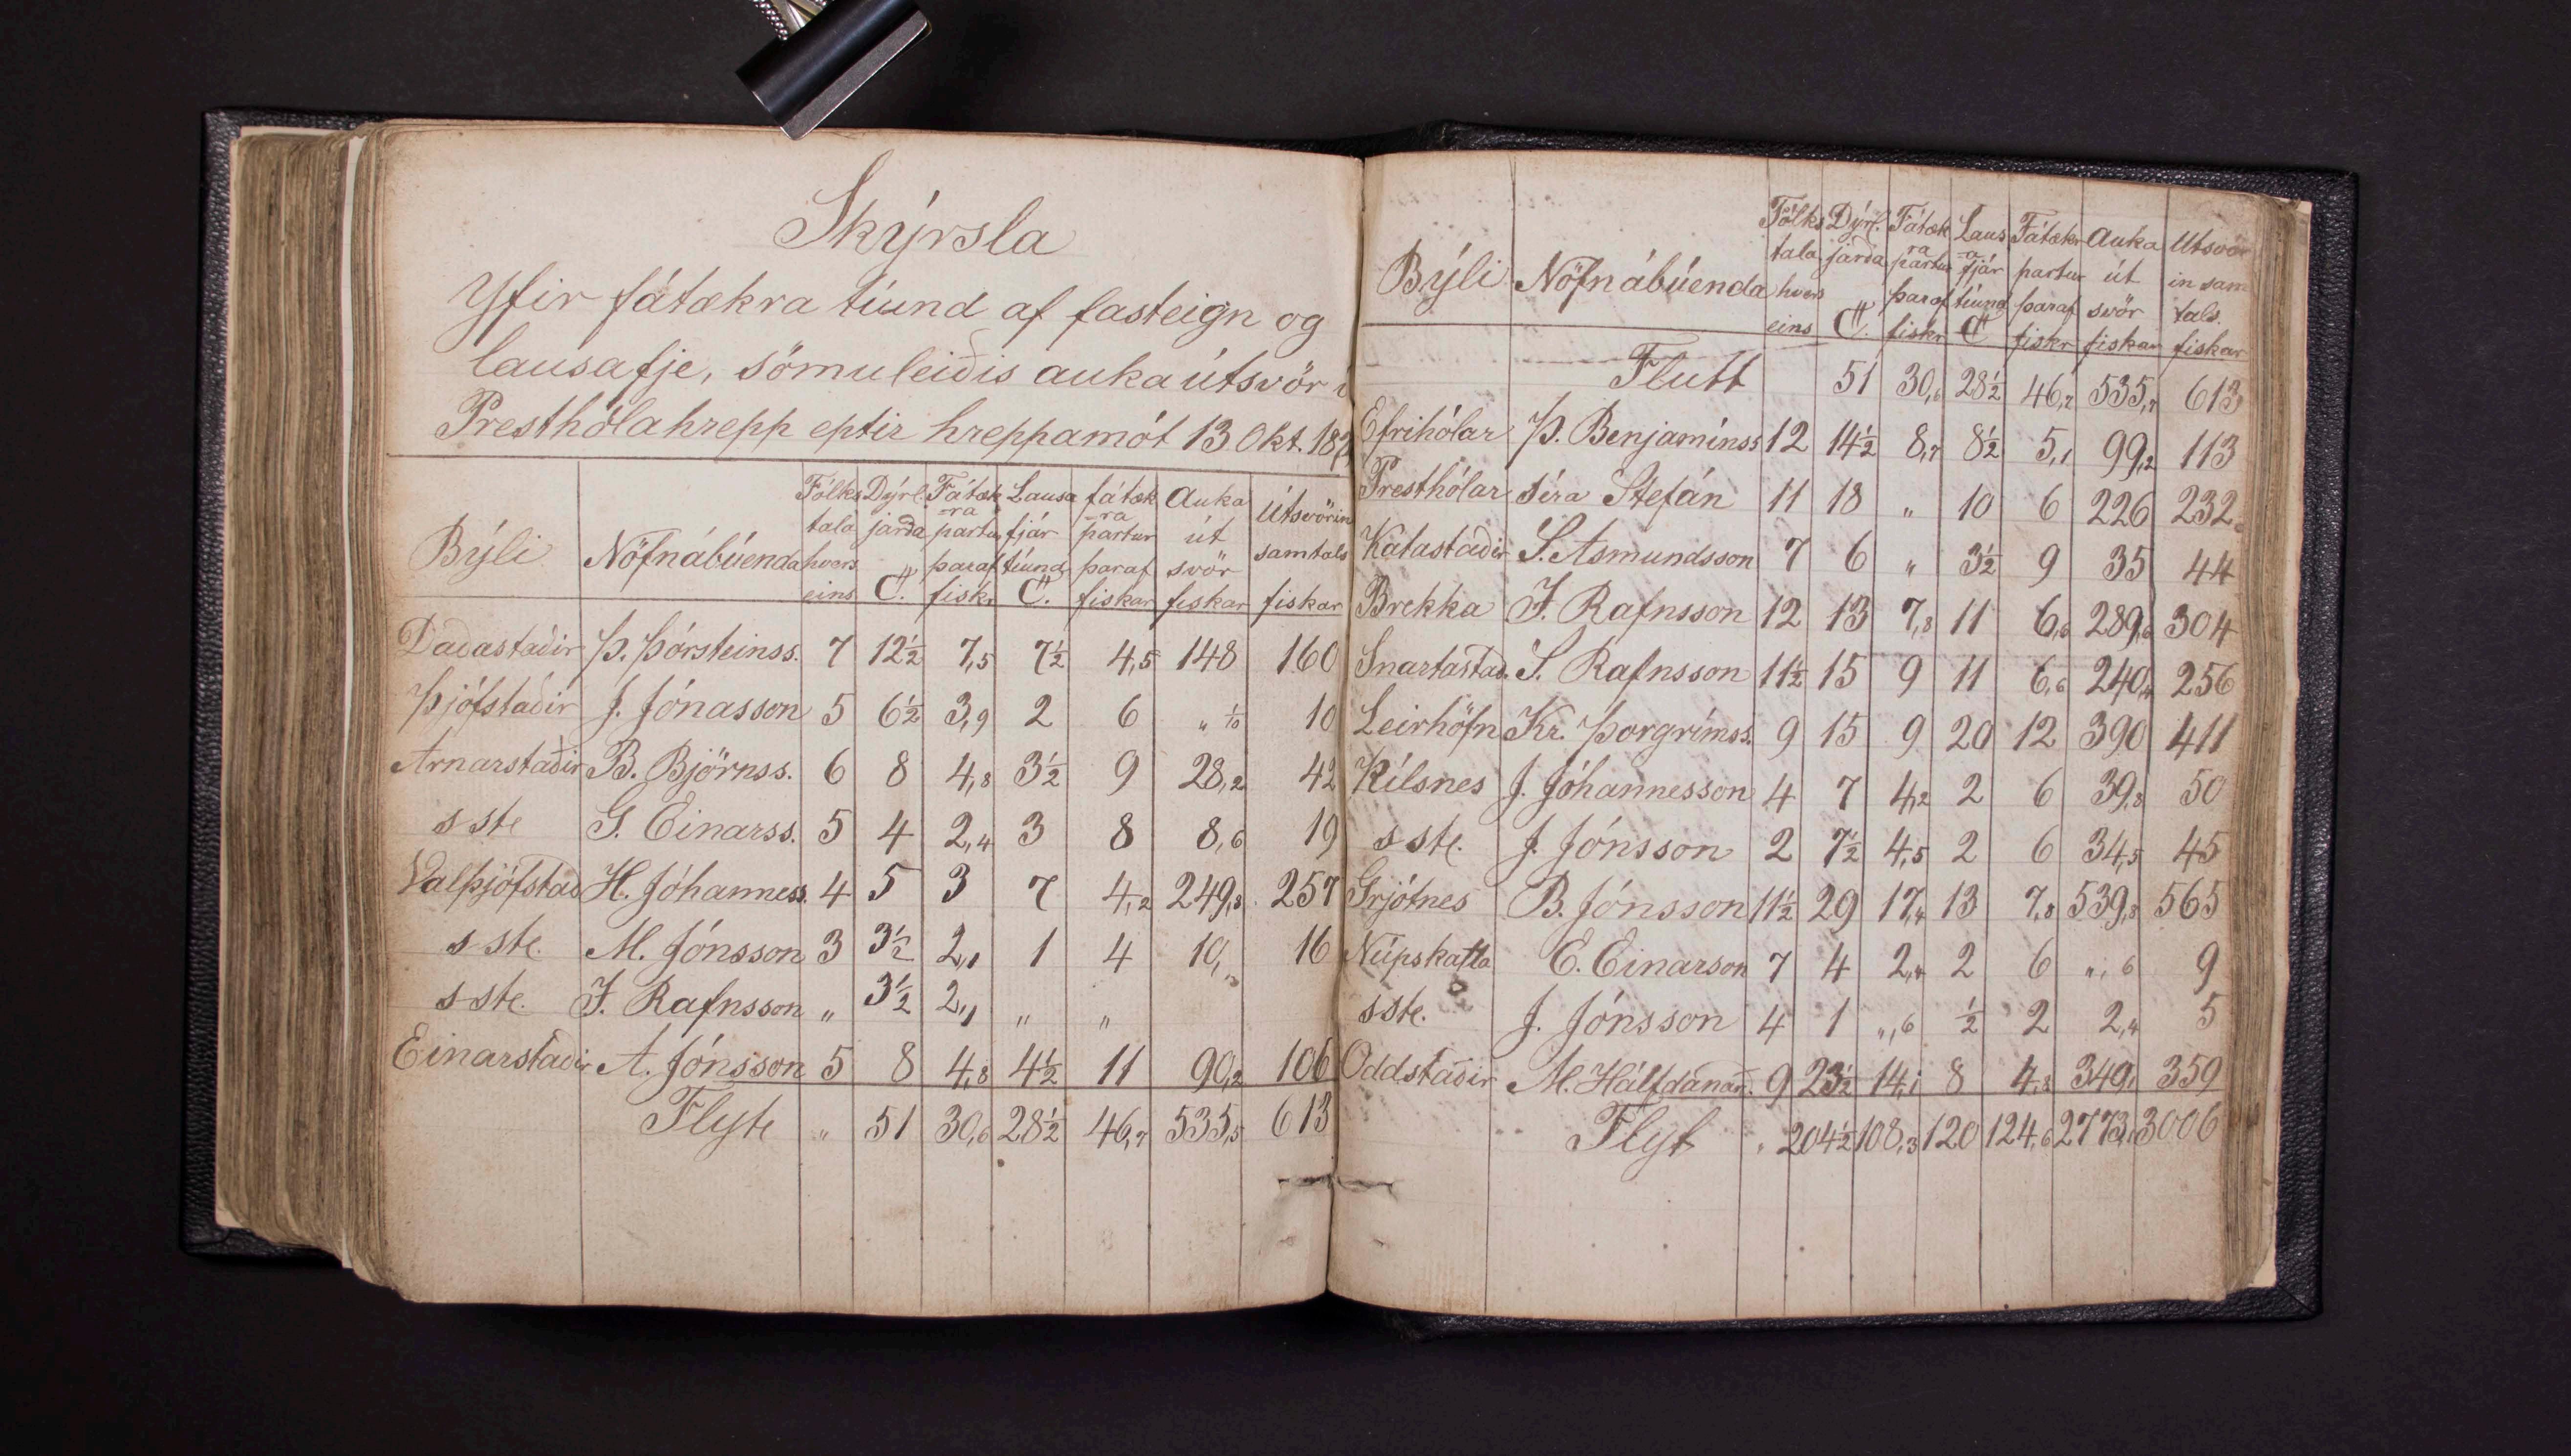 Skýrsla
Yfir fátækra tíund af fasteign og
lausafje, sömuleiðis auka útsvör í
Presthólahrepp eptir hreppamót 13 Okt.
Býli Nöfn ábúenda Fólks tala hvers eins Dýrl. jarða C. Fátæk-ra partur þaraf fiskr Lausa fjár tíund C. fátæk-ra partur þaraf fiskar Auka út svör fiskar Útsvörin samtals fiskar
Daðastaðir Þ. Þórsteinss. 7 12½ 7,5 7½ 4,5 148 160
Þjófstaðir J. Jónasson 5 6½ 3,9 2 6 „ 1/10 10
Arnarstaðir B. Björnss. 6 8 4,8 3½ 9 28,2 42
s ste G. Einarss. 5 4 2,4 3 8 8,6 19
Valþjófstað H. Jóhanness. 4 5 3 7 4,2 249,8 257
s ste. M. Jónsson 3 3½ 2,1 1 4 10, 16
s ste. F. Rafnsson „ 3½ 2,1 „ „
Einarstaðir A. Jónsson 5 8 4,8 4½ 11 90,2 106
Flyte „ 51 30,6 28½ 46,7 535,5 613
Býli Nöfn ábúenda Fólks tala hvers eins Dýrl. jarða C. Fátæk ra partur þaraf fiskr Laus-a fjár tíund C Fátækr partur þaraf fiskr Auka út svör fiskar Utsvör in sam tals. fiskar
Flutt 51 30,6 28½ 46,7 535,7 613
Efrihólar Þ. Benjamínss 12 14½ 8,7 8½ 5,1 99,2 113
Presthólar síra Stefán 11 18 „ 10 6 226 232
Katastaðir S. Asmundsson 7 6 „ 3½ 9 35 44
Brekka F. Rafnsson 12 13 7,8 11 6,6 289,6 304
Snartastað. S. Rafnsson 11½ 15 9 11 6,6 240,4 256
Leirhöfn Kr. Þorgrímss. 9 15 9 20 12 390 411
Rílsnes J. Jóhannesson 4 7 4,2 2 6 39,8 50
s ste. J. Jónsson 2 7½ 4,5 2 6 34,5 45
Grjótnes B. Jónsson 11½ 29 17,4 13 7,8 539,8 565
Núpskatla E. Einarson 7 4 2,4 2 6 „, 6 9
s ste. J. Jónsson 4 1 „,6 ½ 2 2,4 5
Oddstaðir M. Hálfdanar. 9 23½ 14,1 8 4,8 340,1 359
Flyt „ 204½ 108,3 120 124,6 2773,1 3006